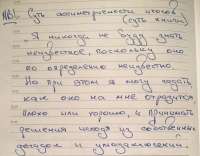 NB! Суть асимметричности исходов
(суть книги)
Я никогда не буду знать
неизвестное, поскольку оно
по определению неизвестно.
Но при этом я могу гадать
как оно на мне отразится
плохо или хорошо, и принимать
решения исходя из собственных
догадок и умозаключений.